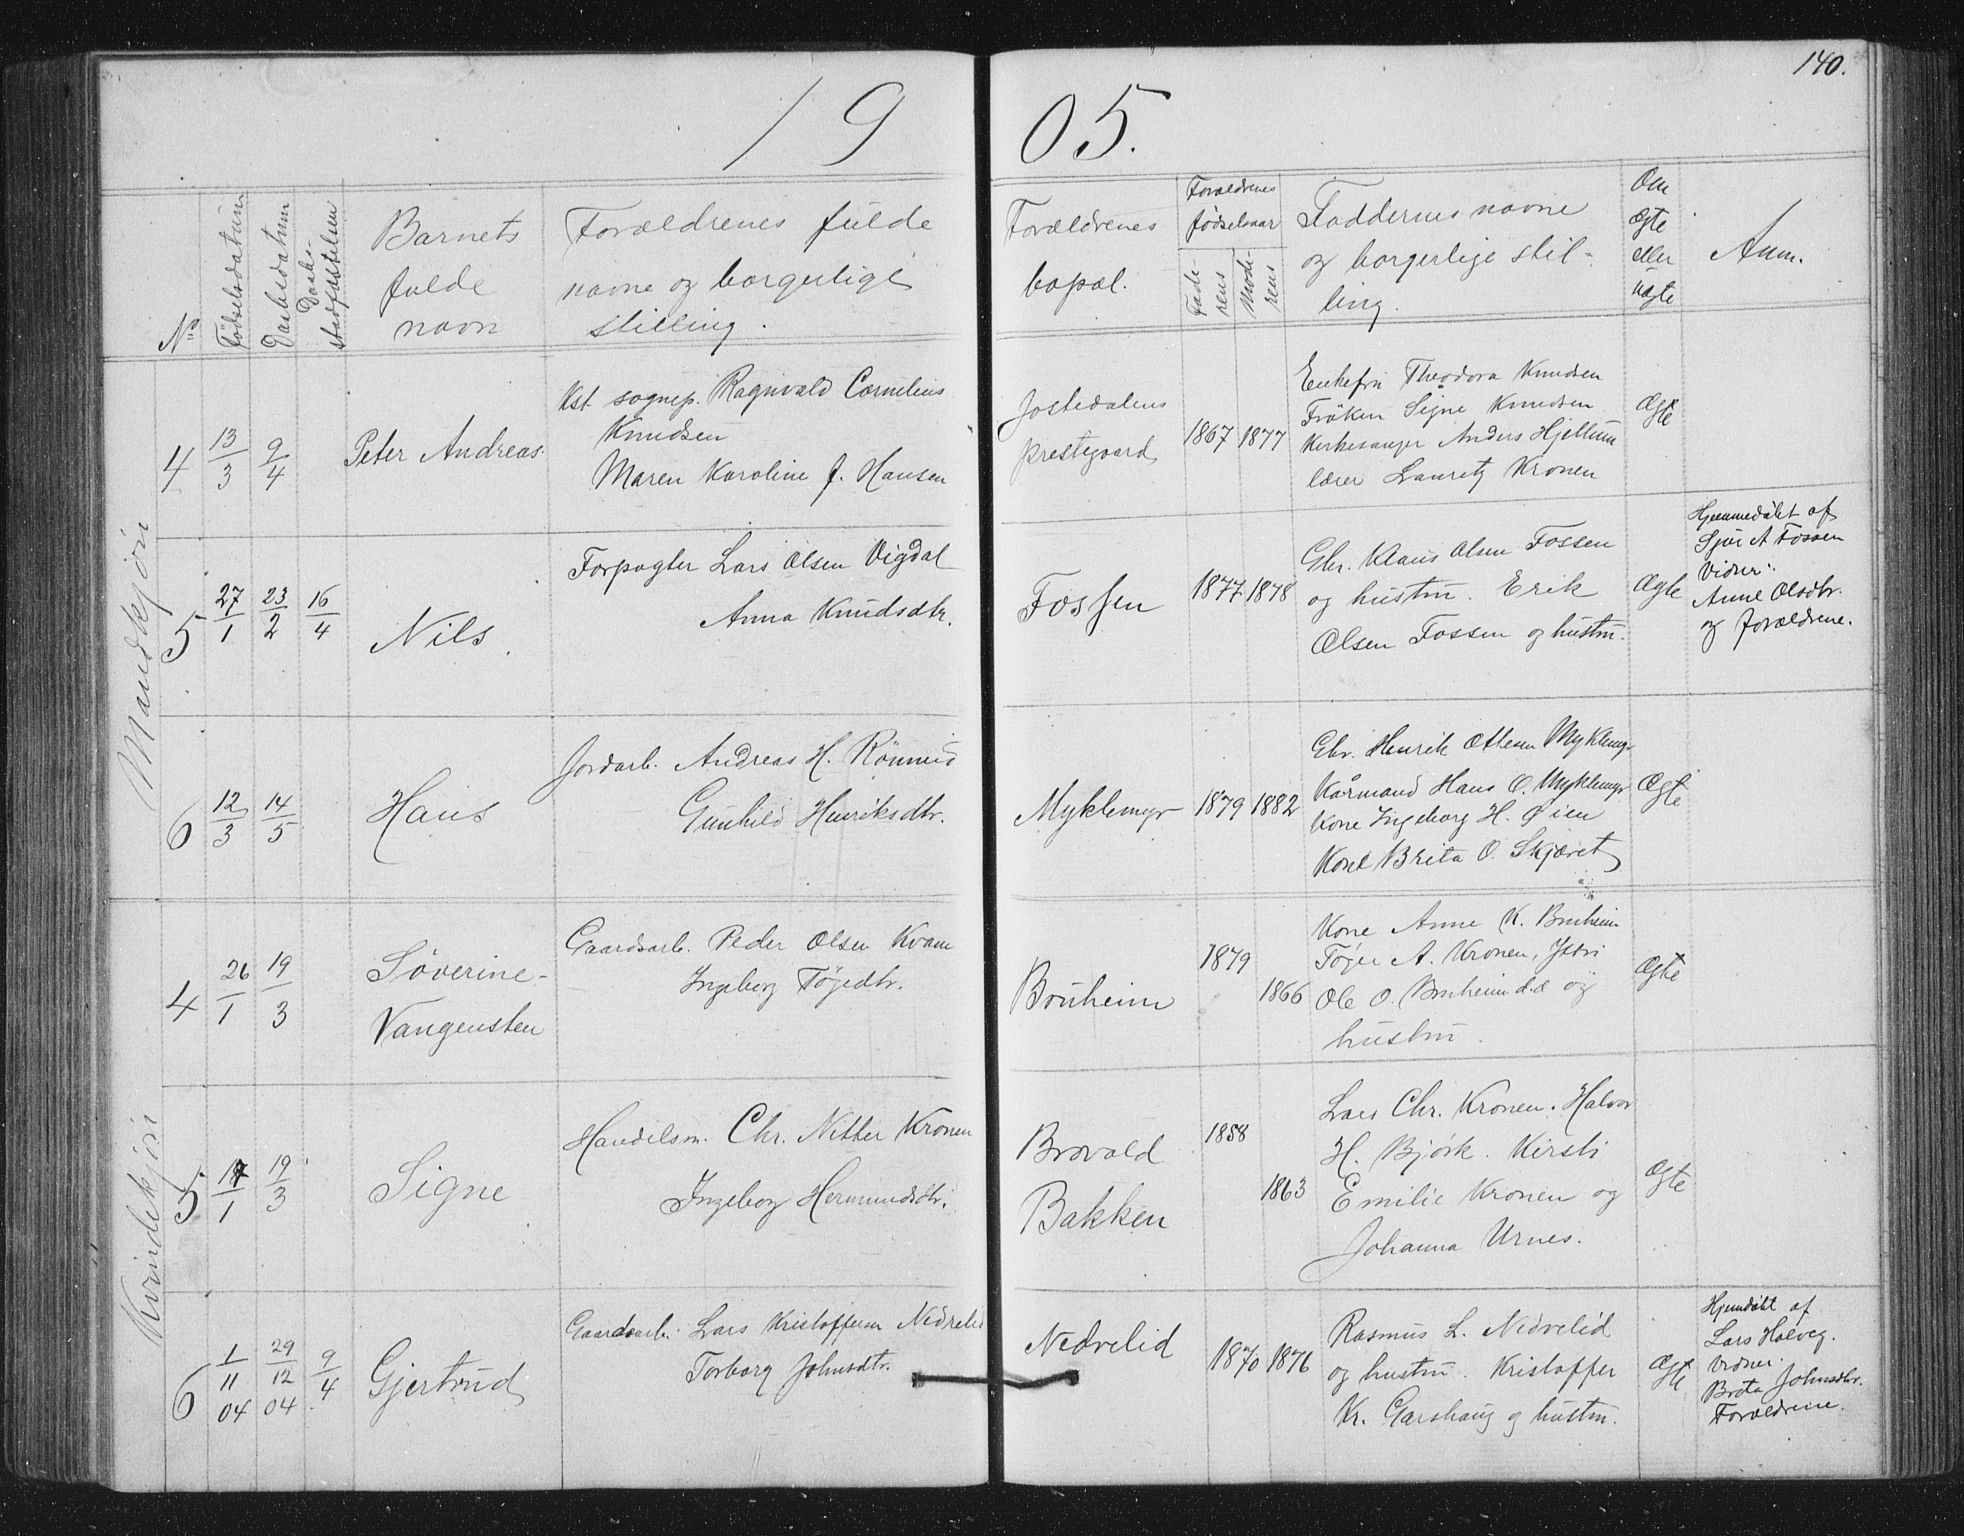 140.
1905.
No
Fødselsdatum
Daabsdatum
Daabs-
stadfæstelsen
Barnets
fulde
navn
Forældrenes fulde
navne og borgerlige
stilling.
Forældrenes
bopæl.
Forældrenes
fødselsaar
Fade-
rens
Mode-
rens
Faddernes navne
og borgerlige stil-
ling.
Om
ægte
eller
uægte
Anm.
Mandkjøn
4
13/3
9/4
Peter Andreas
Kst. sognep. Ragnvald Cornelius
Knudsen
Maren Karoline f. Hansen
Jostedalens
prestegaard
1867
1877
Enkefru Theodora Knudsen
Frøken Signe Knudsen
Kirkesanger Anders Hjellum
lærer Lauritz Kronen
Ægte
5
27/1
23/2
16/4
Nils
Forpagter Lars Olsen Vigdal
Anna Knudsdtr.
Fossen
1877
1878
Gbr. Klaus Olsen Fossen
og hustru. Erik
Olsen Fossen og hustru.
Ægte
Hjemmedøbt af
Sjur A Fossen
Vidner:
Anne Olsdtr.
og forældrene.
6
12/3
14/5
Hans
Jordarb. Andreas H. Rönneid
Gunhild Henriksdtr.
Myklemyr
1879
1882
Gbr. Henrik Ottesen Myklemyr
Kårmand Hans O. Myklemyr
Kone Ingeborg H. Øien
Kone Brita O. Skjæret
Ægte
Kvindekjøn
4
26/1
19/3
Søverine-
Vangensten
Gaardsarb. Peder Olsen Kvam
Ingeborg Tøgedtr.
Bruheim
1879
1866
Kone Anne K. Bruheim
Tøger A. Kronen, Ystri
Ole O. Bruheim d.æ og
hustru
Ægte
5
17/1
19/3
Signe
Handelsm. Chr. Nitter Kronen
Ingeborg Hermundsdtr.
Brovold
Bakken
1858
1863
Lars Chr. Kronen. Halvor
H. Bjørk. Kirsti
Emilie Kronen og
Johanna Urnes.
Ægte
6
1/11 04
29/12 04
9/4
Gjertrud
Gaardsarb. Lars Kristoffersen Nedrelid
Torborg Johnsdtr.
Nedrelid
1870
1876
Rasmus L. Nedrelid
og hustru. Kristoffer
Kr. Garshaug og hustru.
Ægte
Hjemdøbt af
Lars
Vidner.
Brita Johnsdtr.
Forældrene.